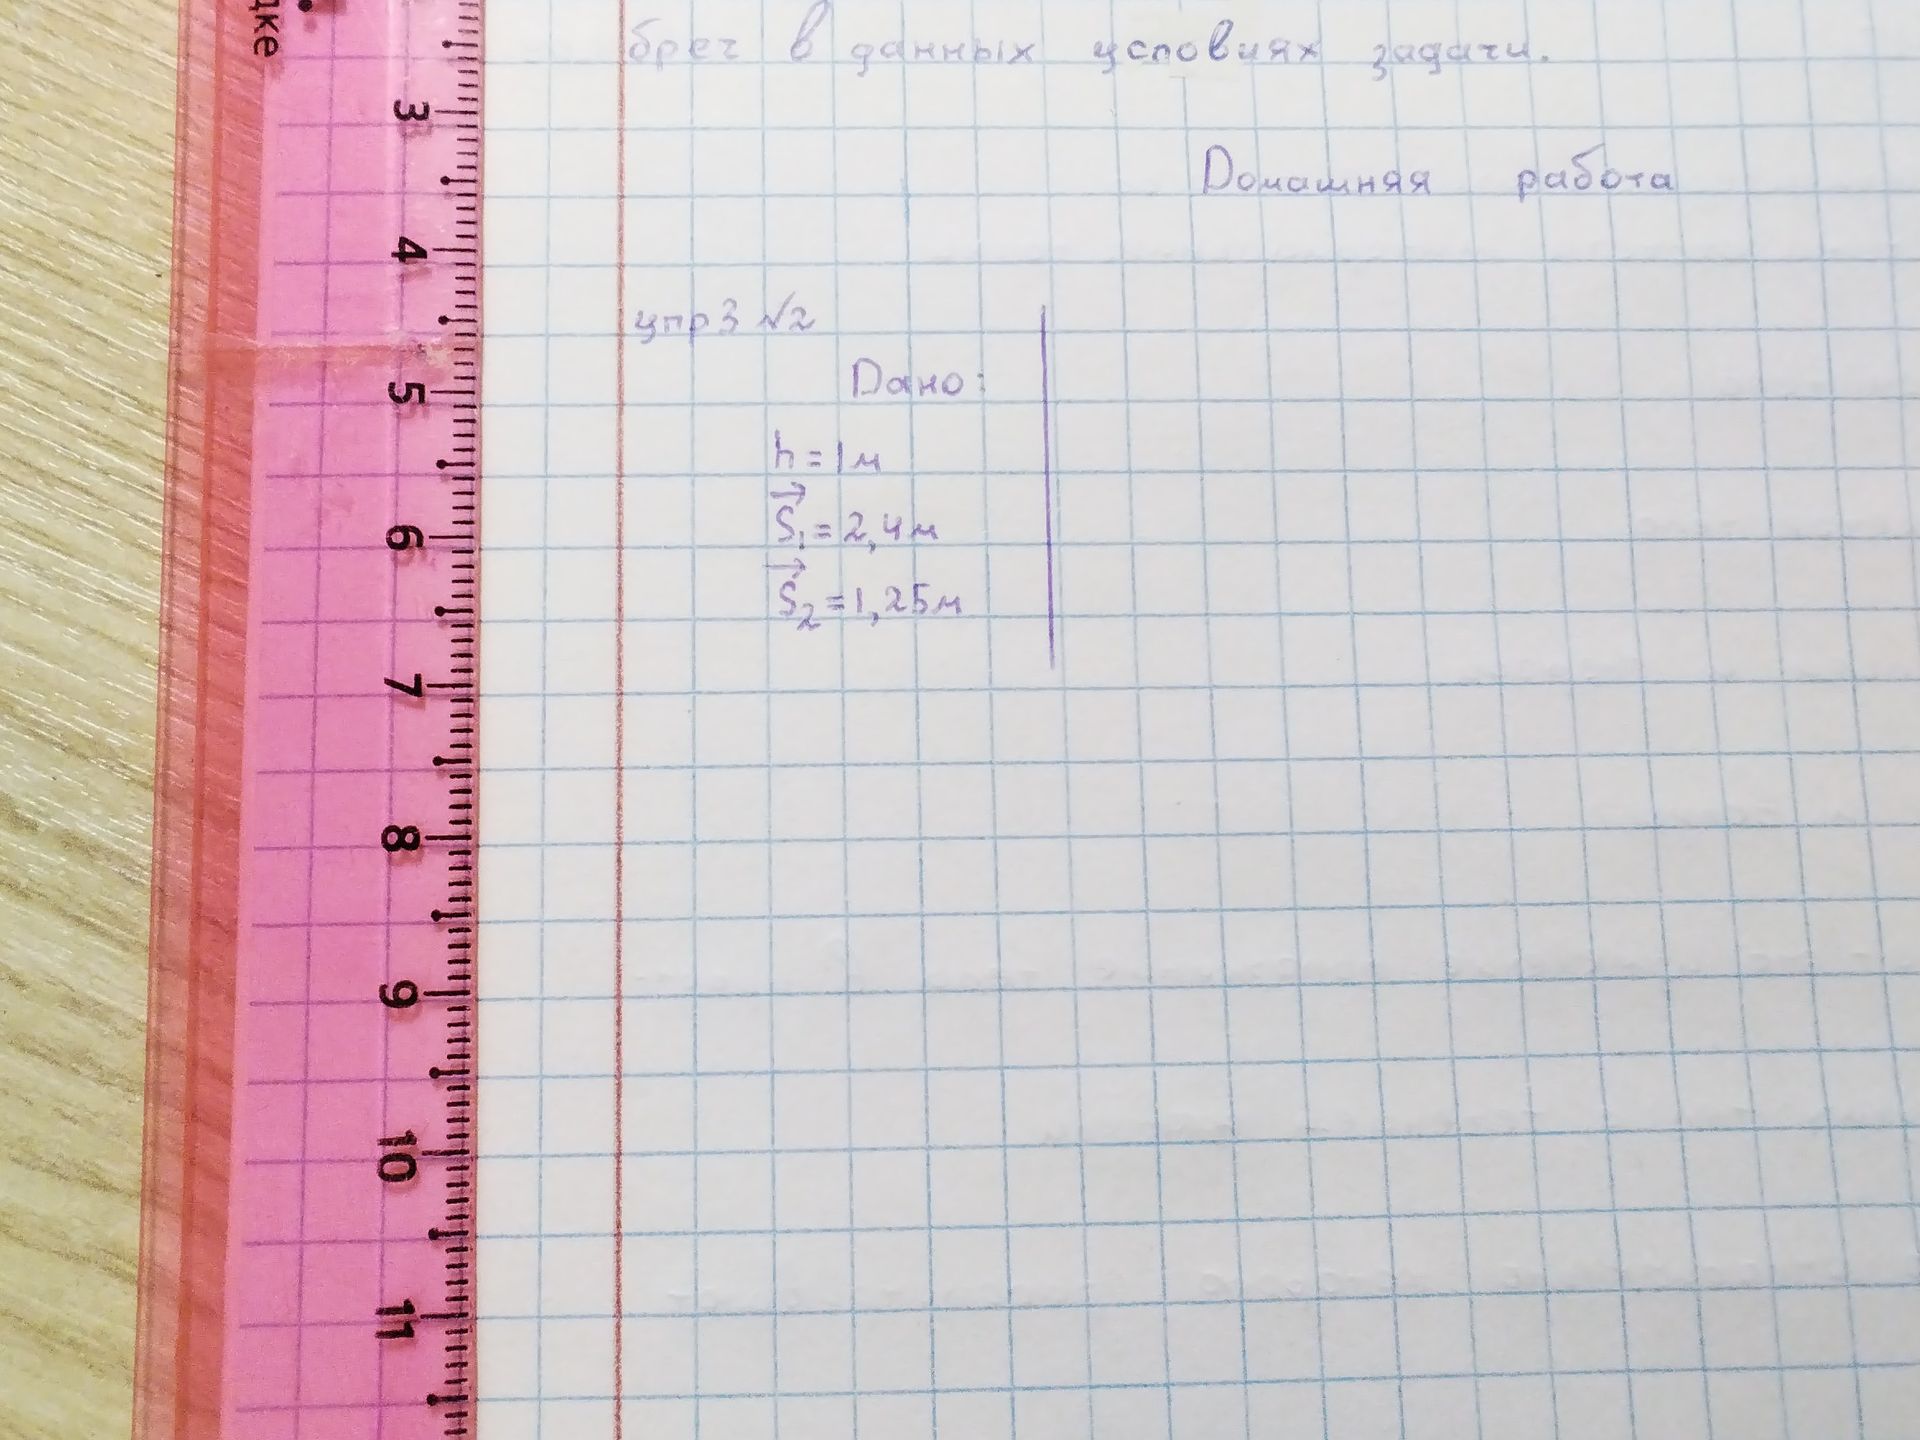 дке
3
4
5
6
7
8
9
10
11
бреч в данных условиях задачи.
Домашняя работа
упр 3 №2
Дано:
h = 1 м
S⃗₁ = 2,4 м
S⃗₂ = 1,25 м